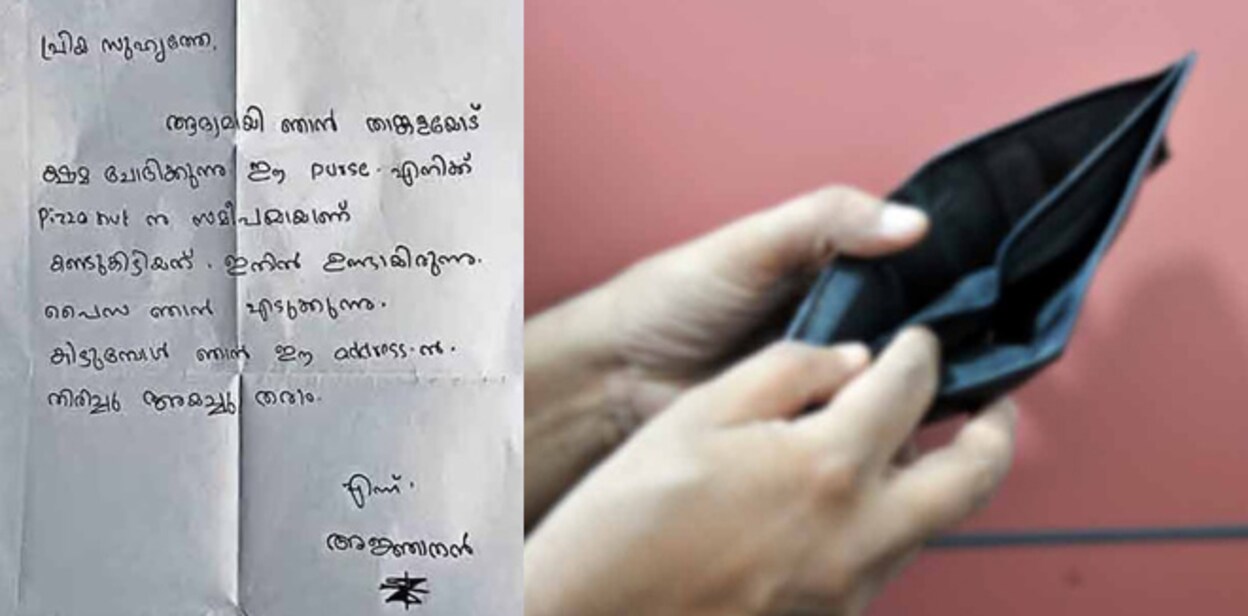 പ്രിയ സുഹൃത്തേ,
ആദ്യമായി ഞാൻ താങ്കളയോട്
ക്ഷമ ചോദിക്കുന്നു ഈ purse. എനിക്ക്
Pizza hut ന സമീപമായാണ്
കണ്ടുകിട്ടിയത്. ഇതിൽ ഉണ്ടായിരുന്നു.
പൈസ ഞാൻ എടുക്കുന്നു.
കിട്ടുമ്പോൾ ഞാൻ ഈ address.ൽ.
തിരിച്ചു അയച്ചു തരാം.
എന്ന്.
അജ്ഞാതൻ